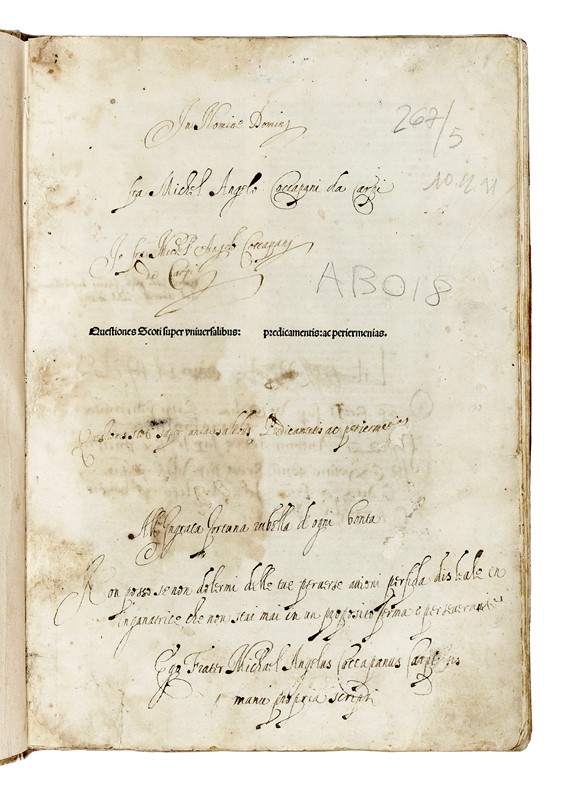 In Nomine Domini
267/5
fra Michel Angelo Coccapani da Carpi
10.
Io fra Michel Angelo Coccapani
da Carpi
ABO18
Questiones Scoti super vniuersalibus: predicamentis: ac periermenias.
Questiones Scoti super uniuersalibus Predicamentis ac periermenias
Ingrata fortuna rubella d ogni bonta
Non posso se non dolermi delle tue peruerse attioni perfida disleale en
Inganatrice che non stai mai in un proposito ferma e perseuerante
Ego Frater Michael Angelus Coccapanus Carpensis
manu propria scripsi